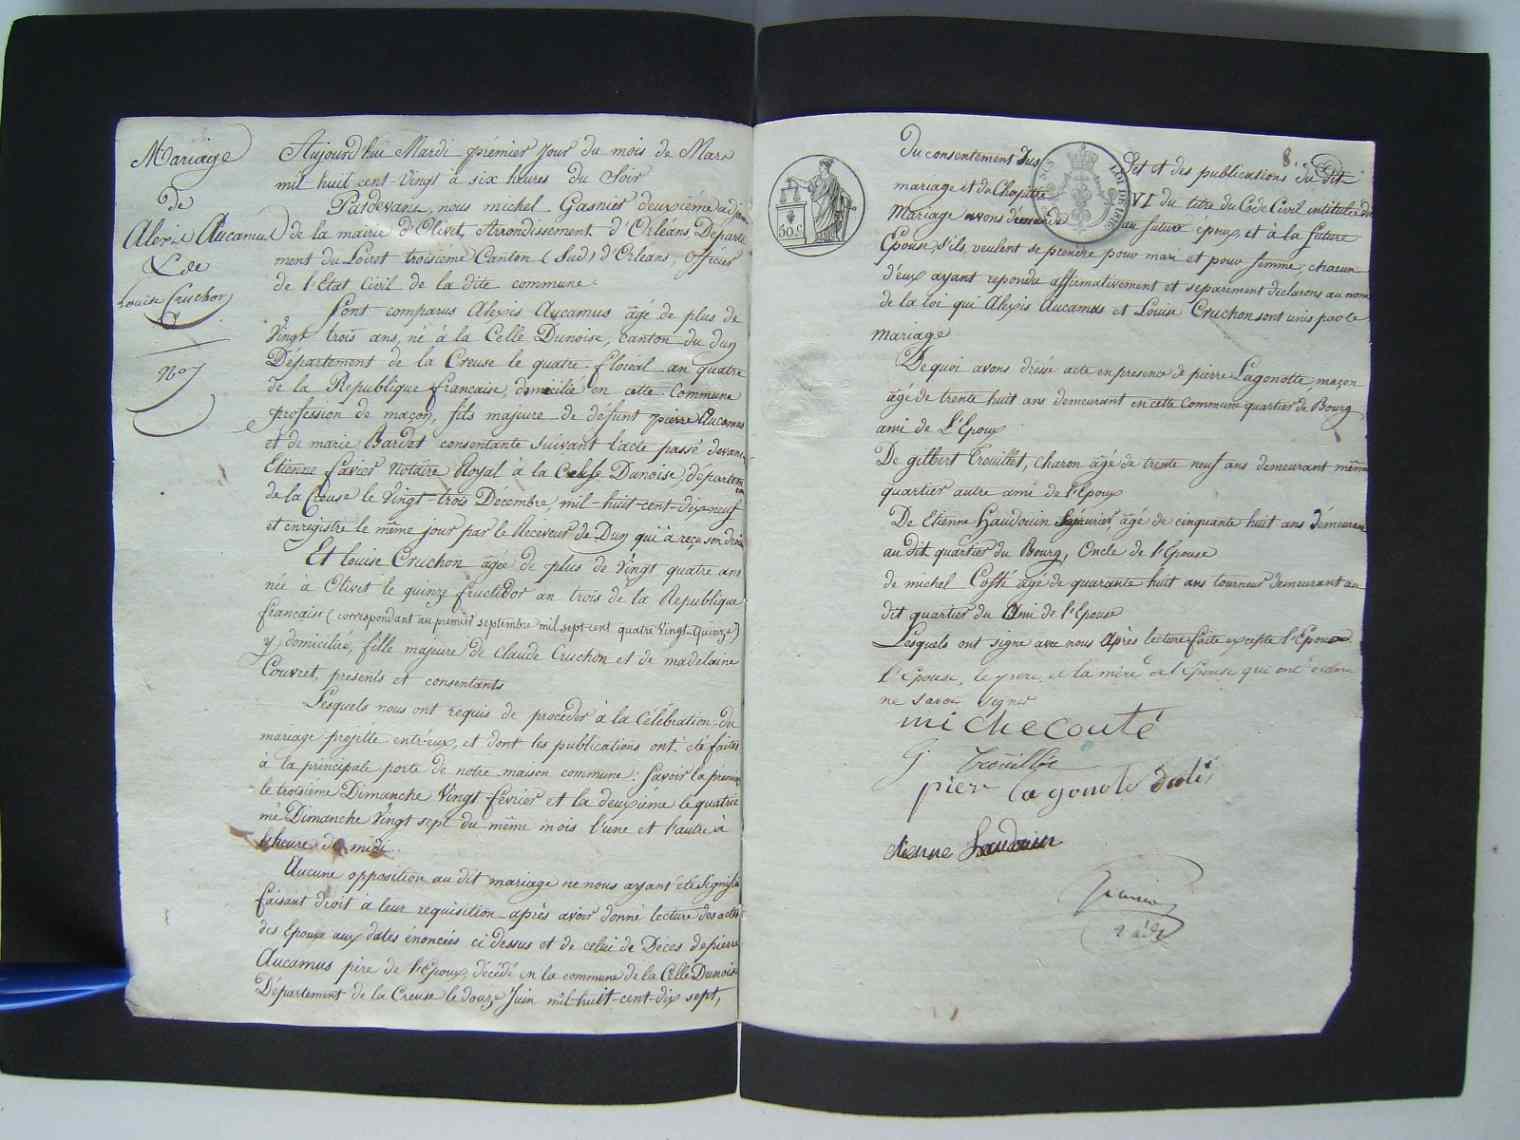 Mariage
de
Alexie Aucamus
& de
Louise Cruchon
No 7
Aujourd'hui Mardi premier Jour du mois de Mars
mil huit cent vingt à six heures du Soir
Pardevant nous michel Gasnier deuxième adjoint
de la mairie d'Olivet, Arrondissement d'Orléans, Départe
ment du Loiret troisieme Canton (Sud) d'Orleans, officier
de l'Etat Civil de la dite commune.
Sont comparus Alexis Aucamus âgé de plus de
vingt trois ans, né à la Celle Dunoise, canton du dun
Département de la Creuse le quatre floreal an quatre
de la Republique francaise, domicilié en cette Commune
profession de maçon, fils majeure de defunt pierre Aucamus
et de marie Bardat consentante Suivant l'acte passé devant
Etienne favier Notaire Royal à la Celle Dunoise, départem
de la Creuse le Vingt-trois Décembre, mil-huit-cent-dix-neuf
et enregistre le même jour par le Receveur de Dun qui à reçu son droit
Et louise Cruchon agée de plus de vingt quatre ans
née à Olivet le quinze fructidor an trois de la Republique
francaise (correspondant au premier septembre mil sept cent quatre vingt-quinze)
y domiciliée, fille majeure de Claude Cruchon et de madelaine
Couvret, presents et consentants
Lesquels nous ont requis de proceder à la Célébration du
mariage projetté entr'eux, et dont les publications ont été faites
à la principale porte de notre maison commune: Savoir la premiere
le troisieme Dimanche Vingt fevrier et la deuxiéme le quatrie
me Dimanche Vingt sept du même mois l'une et l'autre à
l'heure de midi.
Aucune opposition au dit mariage ne nous ayant été Signifiée
faisant droit à leur requisition après avoir donné lecture des actes
des Epoux aux dates énoncées ci dessus et de celui de Déces de pierre
Aucamus père de l'Epoux, décédé en la commune de la Celle Dunoise
Département de la Creuse le douze Juin mil-huit-cent-dix sept,
8.
50.C
LOI DE 1816
Du consentement Sus et des publications du dit
mariage et du Chapitre VI du titre du Code Civil intitulé du
Mariage avons demandé au futur époux et à la future
Epouse, s'ils veulent se prendre pour mari et pour femme, chacun
d'eux ayant repondu affirmativement et séparément declarons au nom
de la loi qui Alexis Aucamus et Louise Cruchon sont unis par le
mariage
De quoi avons dréssé acte en presence de pierre Lagonotte, maçon
âgé de trente huit ans demeurant en cette commune quartier de Bourg
ami de L'Epoux
De gilbert Trouillet, charon âgé de trente neuf ans demeurant même
quartier autre ami de l'Epoux
De Etienne Haudouin Serrurier âgé de cinquante huit ans demeurant
au dit quartier du Bourg, Oncle de l'Epouse
de michel Costé agé de quarante huit ans tourneur demeurant au
dit quartier du Ami de l'Epouse
Lesquels ont signé avec nous Après lecture faite excepté l'Epoux
l'Epouse, le pere et la mère de l'Epouse qui ont declaré
ne Savoir signer
miche couté
G Trouillée
pierr lagonote
etienne Haudouin